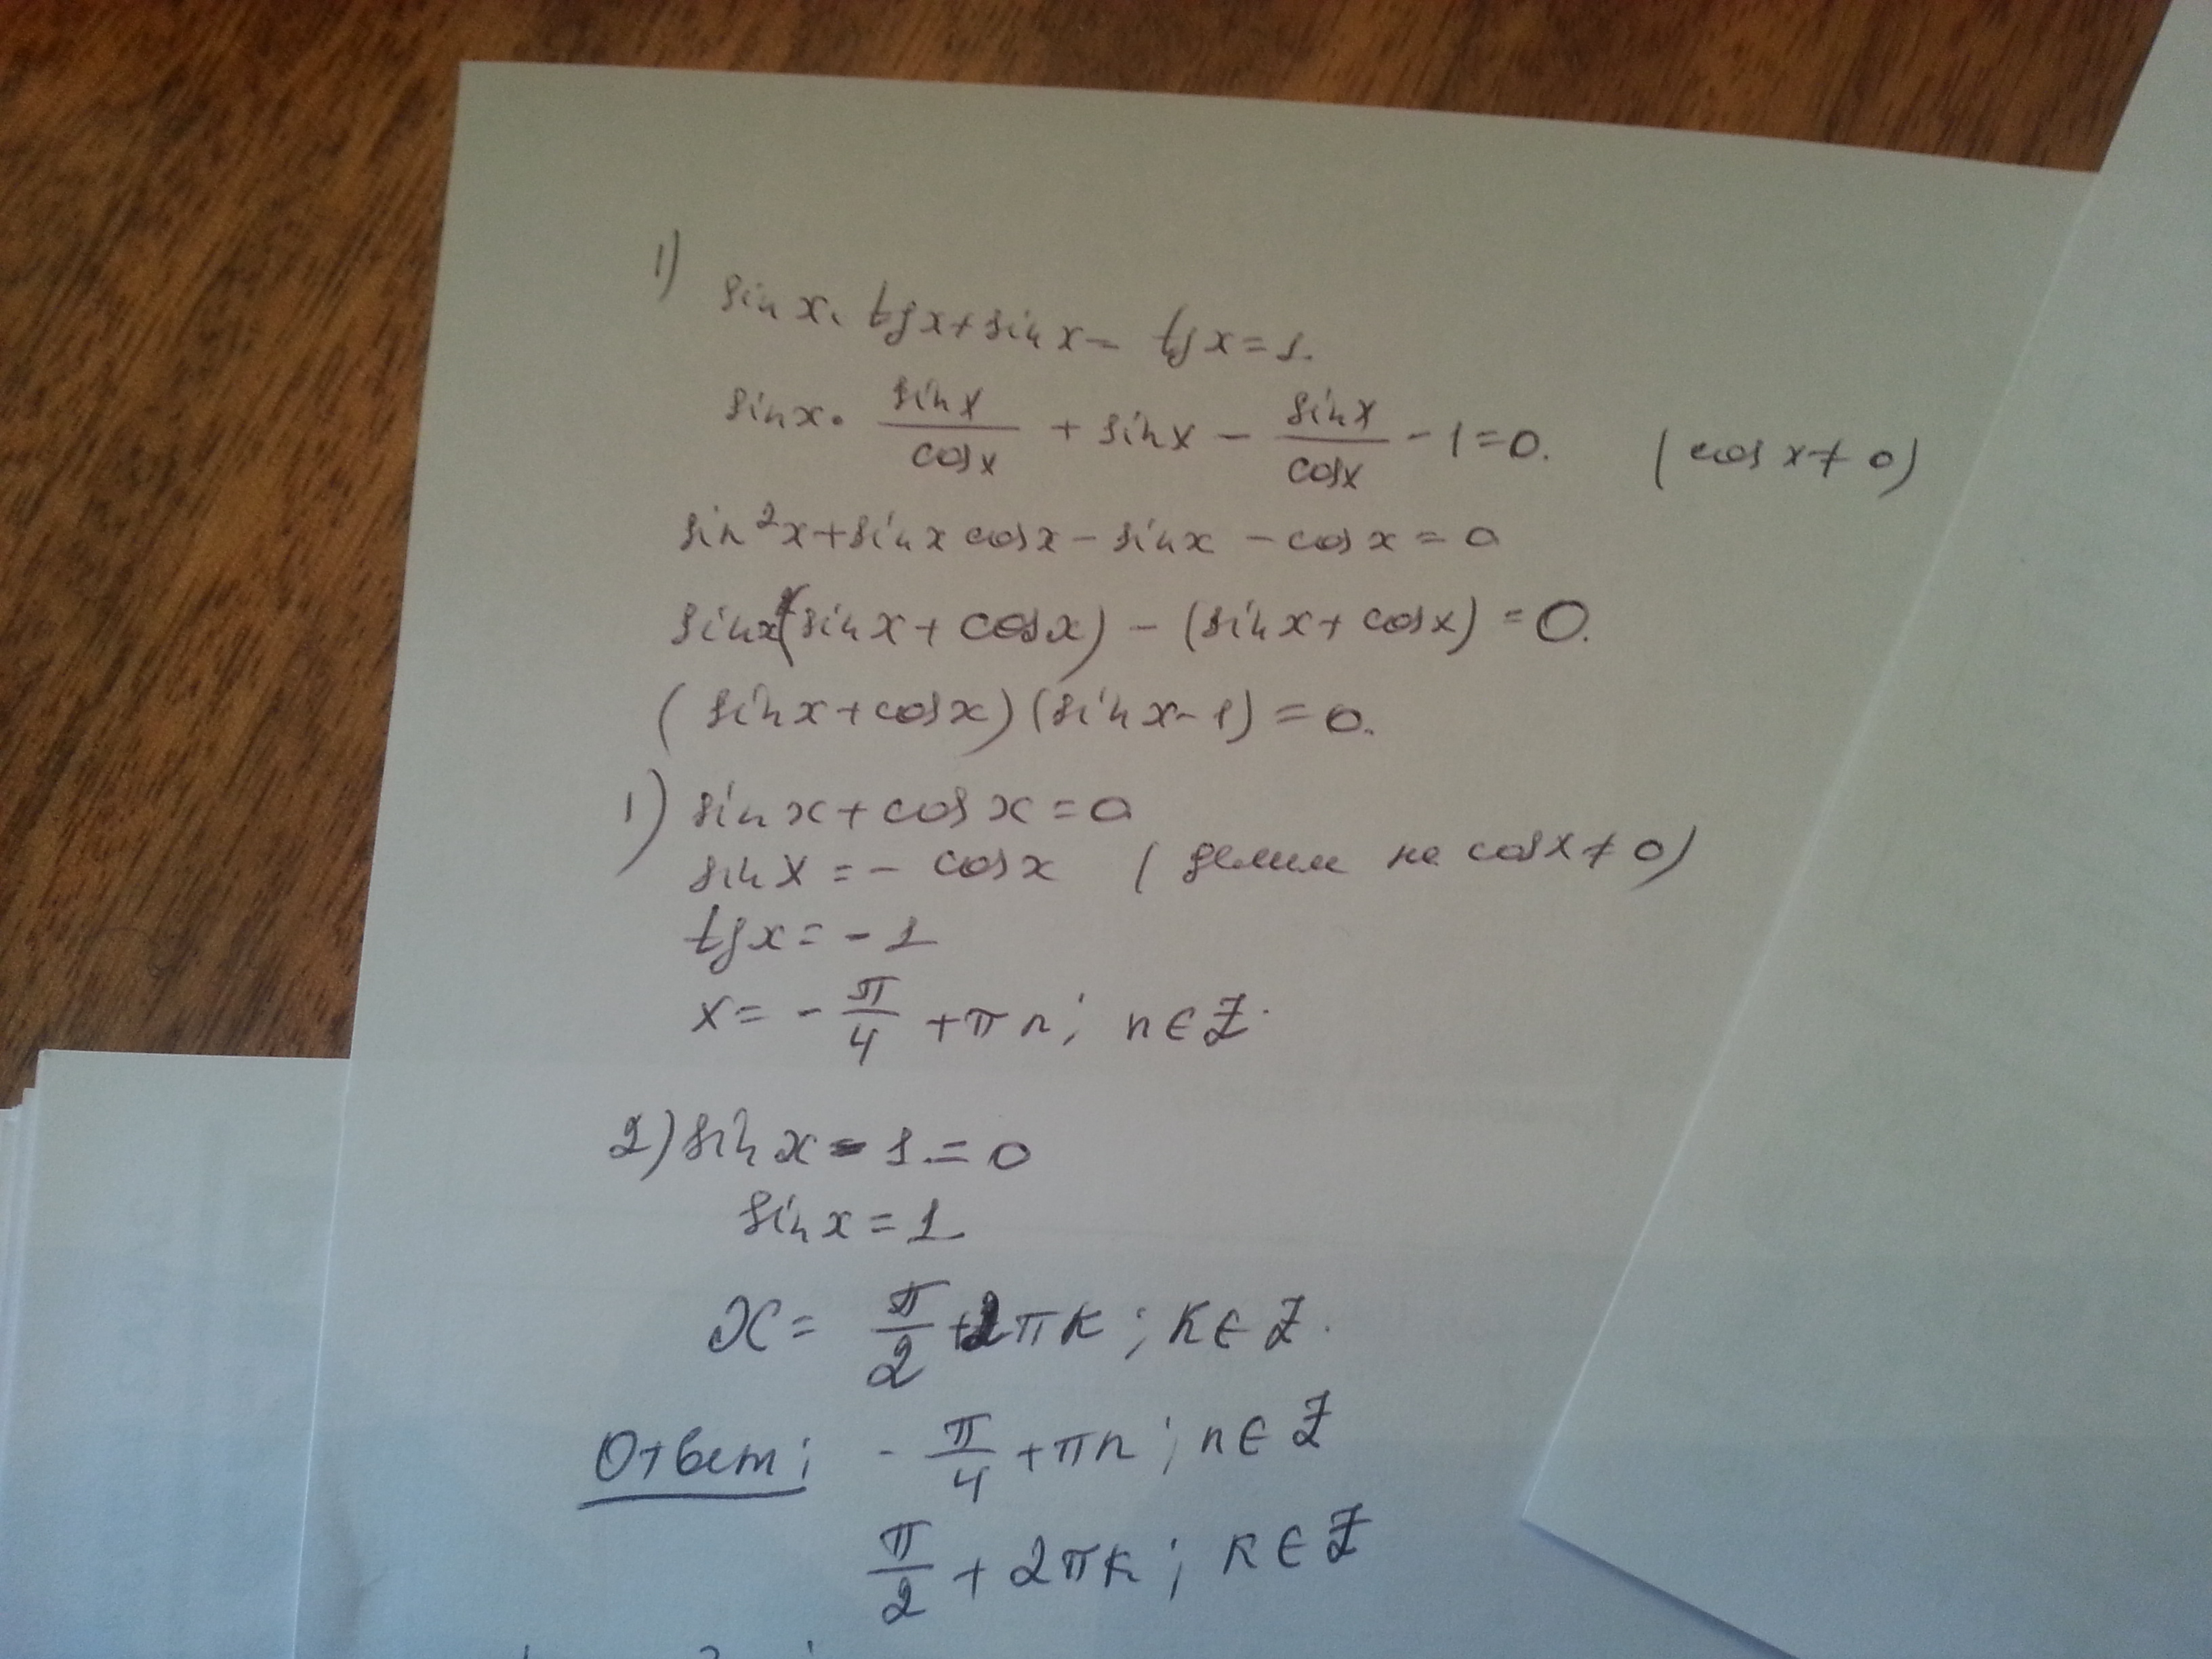 1) sin x · tg x + sin x - tg x = 1.
sin x · sin x / cos x + sin x - sin x / cos x - 1 = 0. (cos x ≠ 0)
sin²x + sin x cos x - sin x - cos x = 0
sin x (sin x + cos x) - (sin x + cos x) = 0.
(sin x + cos x)(sin x - 1) = 0.
1) sin x + cos x = 0
sin x = - cos x (делим на cos x ≠ 0)
tg x = - 1
x = - π/4 + πn; n ∈ Z.
2) sin x - 1 = 0
sin x = 1
x = π/2 + 2πk; k ∈ Z.
Ответ: - π/4 + πn; n ∈ Z
π/2 + 2πk; k ∈ Z